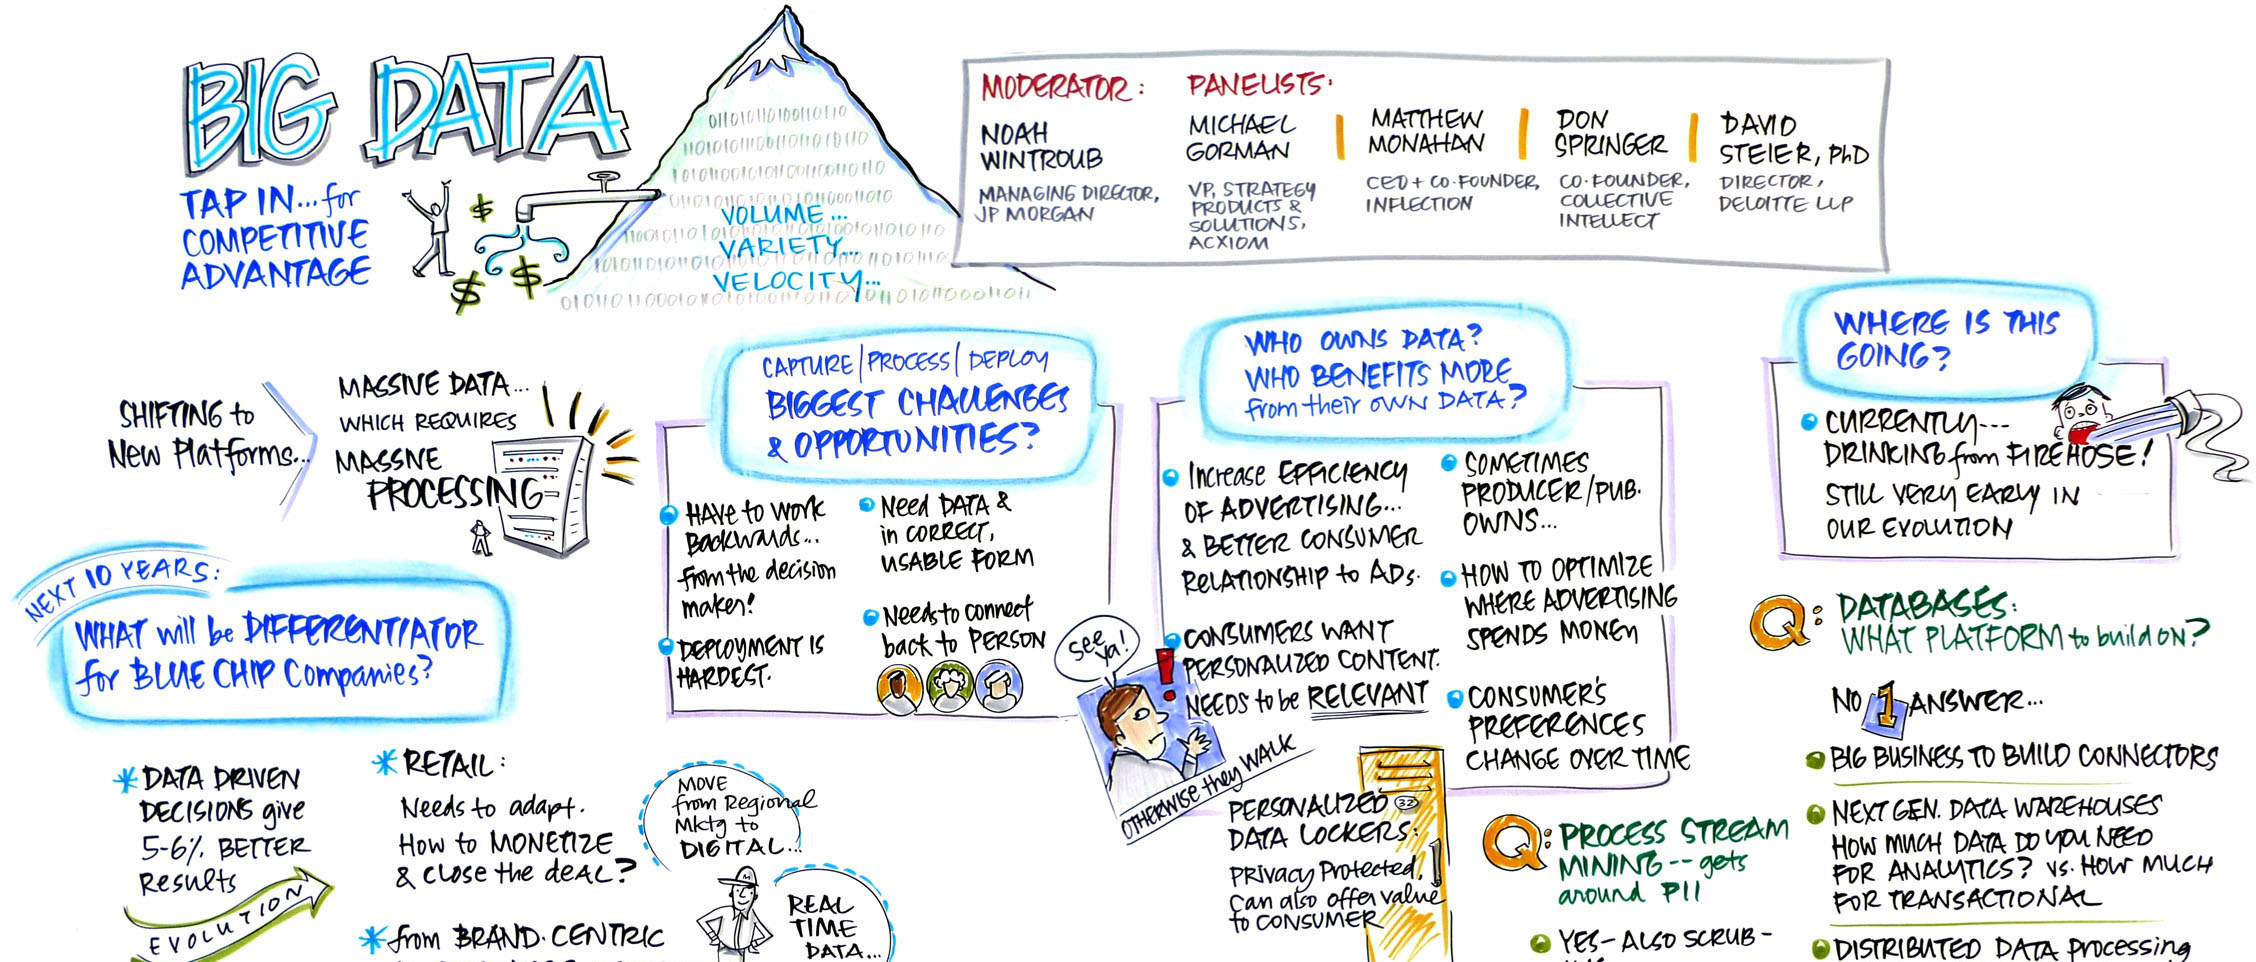 BIG DATA
TAP IN... for
COMPETITIVE
ADVANTAGE
$
$
$
VOLUME...
VARIETY...
VELOCITY...
MODERATOR:
NOAH
WINTROUB
MANAGING DIRECTOR,
JP MORGAN
PANELISTS:
MICHAEL
GORMAN
VP, STRATEGY
PRODUCTS &
SOLUTIONS,
ACXIOM
MATTHEW
MONAHAN
CEO + CO-FOUNDER,
INFLECTION
DON
SPRINGER
CO-FOUNDER,
COLLECTIVE
INTELLECT
DAVID
STEIER, PhD
DIRECTOR,
DELOITTE LLP
SHIFTING to
New Platforms...
MASSIVE DATA...
WHICH REQUIRES
MASSIVE
PROCESSING
NEXT 10 YEARS:
WHAT will be DIFFERENTIATOR
for BLUE CHIP Companies?
DATA DRIVEN
DECISIONS give
5-6% BETTER
Results
EVOLUTION
RETAIL:
Needs to adapt.
How to MONETIZE
& close the deal?
from BRAND-CENTRIC
MOVE
from Regional
Mktg to
DIGITAL...
M
REAL
TIME
DATA...
CAPTURE/PROCESS/DEPLOY
BIGGEST CHALLENGES
& OPPORTUNITIES?
HAVE to work
Backwards...
from the decision
maker!
DEPLOYMENT IS
HARDEST.
Need DATA &
in CORRECT,
USABLE FORM
Needs to connect
back to PERSON
WHO OWNS DATA?
WHO BENEFITS MORE
from their OWN DATA?
Increase EFFICIENCY
OF ADVERTISING...
& BETTER CONSUMER
RELATIONSHIP to ADs.
CONSUMERS WANT
PERSONALIZED CONTENT.
NEEDS to be RELEVANT
OTHERWISE they WALK
See
ya!
!
PERSONALIZED
DATA LOCKERS:
Privacy Protected,
can also offer value
to CONSUMER
32
SOMETIMES
PRODUCER/PUB.
OWNS...
HOW TO OPTIMIZE
WHERE ADVERTISING
SPENDS MONEY
CONSUMER'S
PREFERENCES
CHANGE OVER TIME
Q: PROCESS STREAM
MINING -- gets
around PII
YES - ALSO SCRUB-
WHERE IS THIS
GOING?
CURRENTLY---
DRINKING from FIREHOSE!
STILL VERY EARLY IN
OUR EVOLUTION
Q: DATABASES:
WHAT PLATFORM to build on?
NO 1 ANSWER...
BIG BUSINESS TO BUILD CONNECTORS
NEXT GEN. DATA WAREHOUSES
HOW MUCH DATA DO YOU NEED
FOR ANALYTICS? vs. HOW MUCH
FOR TRANSACTIONAL
DISTRIBUTED DATA processing